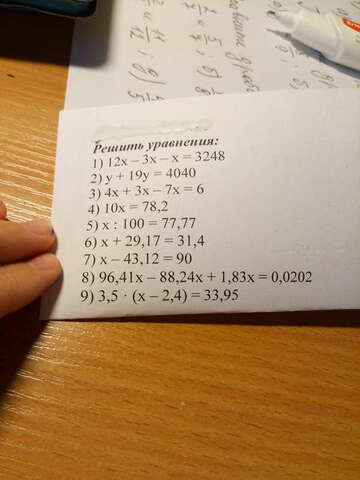 Решить уравнения:
1) 12x – 3x – x = 3248
2) y + 19y = 4040
3) 4x + 3x – 7x = 6
4) 10x = 78,2
5) x : 100 = 77,77
6) x + 29,17 = 31,4
7) x – 43,12 = 90
8) 96,41x – 88,24x + 1,83x = 0,0202
9) 3,5 · (x – 2,4) = 33,95